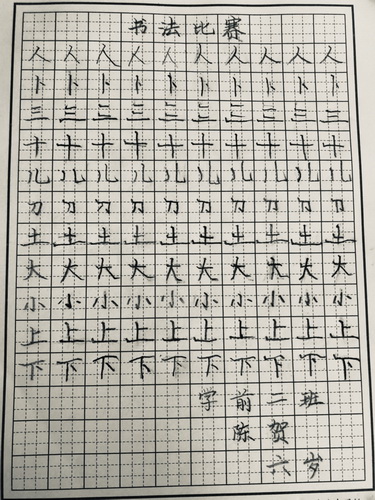 书法比赛
人人人人人人人人人人
卜卜卜卜卜卜卜卜卜卜
三三三三三三三三三三
十十十十十十十十十十
儿儿儿儿儿儿儿儿儿儿
刀刀刀刀刀刀刀刀刀刀
土土土土土土土土土土
大大大大大大大大大大
小小小小小小小小小小
上上上上上上上上上上
下下下下下下下下下下
学前二班
陈贺
六岁